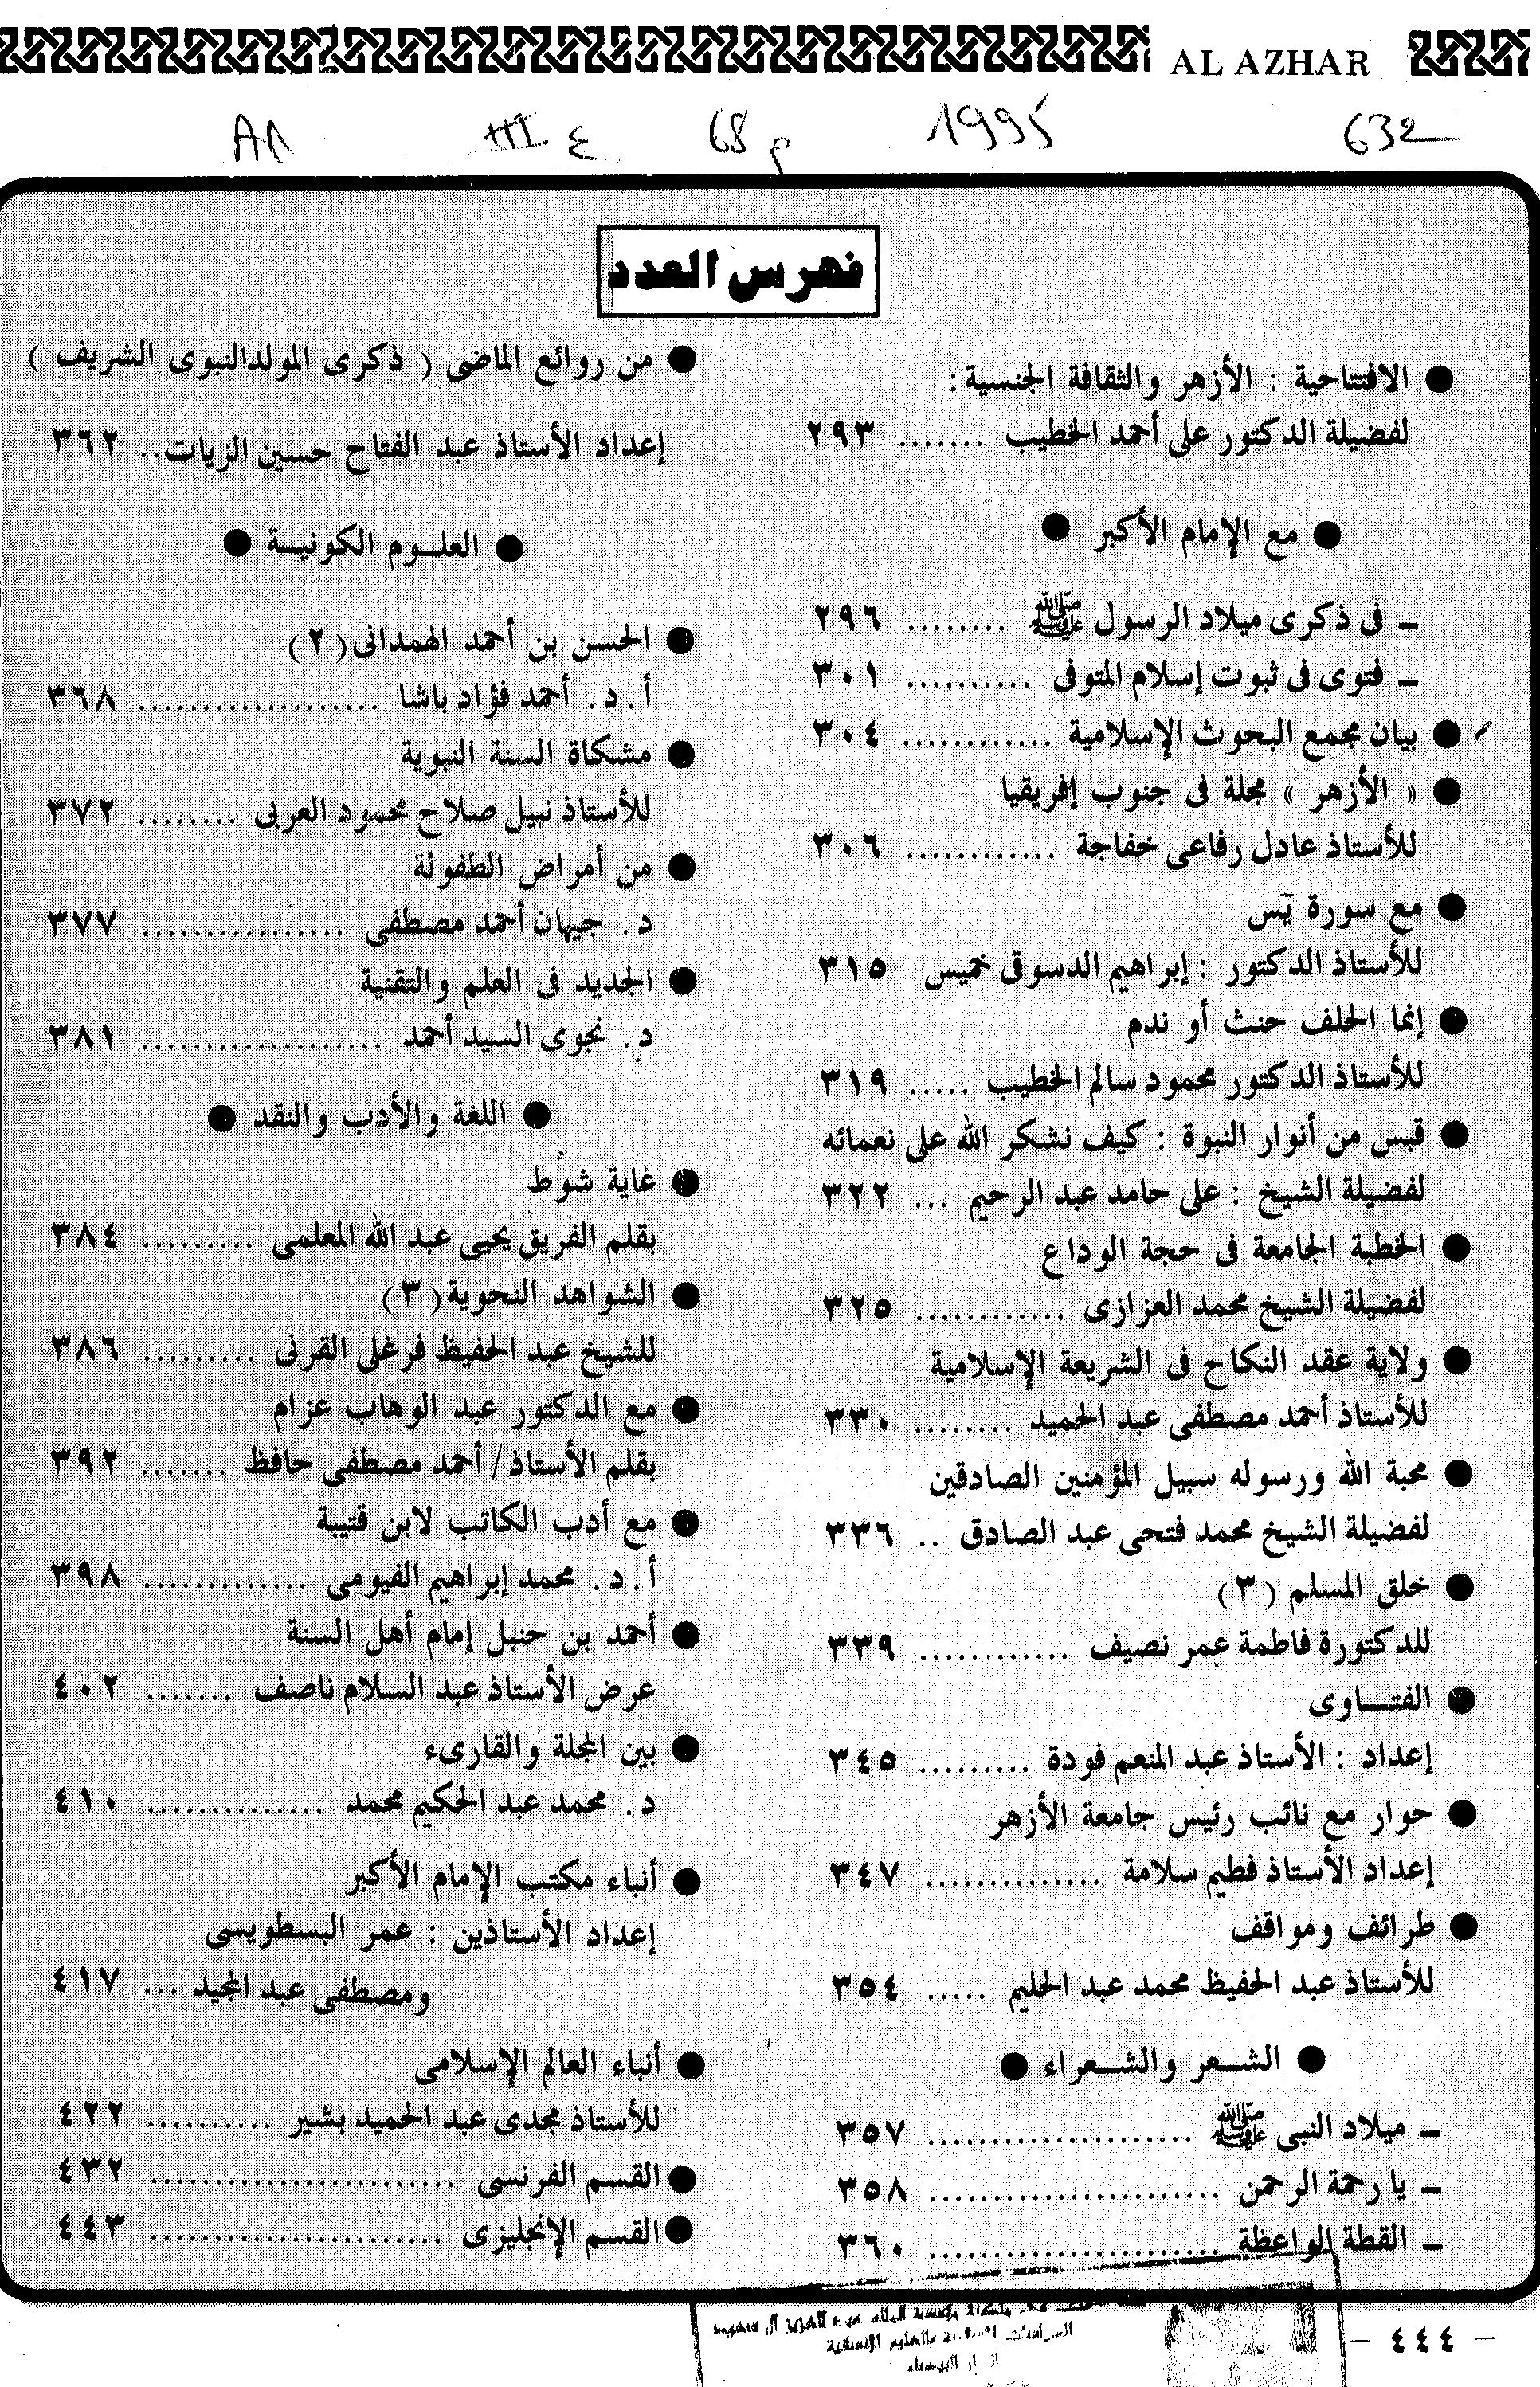 AL AZHAR
1995
632
فهرس العدد
● الافتتاحية : الأزهر والثقافة الجنسية :
لفضيلة الدكتور على أحمد الخطيب ....... ٢٩٣
● مع الإمام الأكبر ●
ـ فى ذكرى ميلاد الرسول ﷺ ........ ٢٩٦
ـ فتوى فى ثبوت إسلام المتوفى .......... ٣٠١
● بيان مجمع البحوث الإسلامية ............ ٣٠٤
● « الأزهر » مجلة فى جنوب إفريقيا
للأستاذ عادل رفاعى خفاجة ............ ٣٠٦
● مع سورة يٓس
للأستاذ الدكتور : إبراهيم الدسوقى خميس ٣١٥
● إنما الحلف حنث أو ندم
للأستاذ الدكتور محمود سالم الخطيب ..... ٣١٩
● قبس من أنوار النبوة : كيف نشكر الله على نعمائه
لفضيلة الشيخ : على حامد عبد الرحيم ... ٣٢٢
● الخطبة الجامعة فى حجة الوداع
لفضيلة الشيخ محمد العزازى ............ ٣٢٥
● ولاية عقد النكاح فى الشريعة الإسلامية
للأستاذ أحمد مصطفى عبد الحميد ........ ٣٣٠
● محبة الله ورسوله سبيل المؤمنين الصادقين
لفضيلة الشيخ محمد فتحى عبد الصادق .. ٣٣٦
● خلق المسلم ( ٣ )
للدكتورة فاطمة عمر نصيف ............ ٣٣٩
● الفتــاوى
إعداد : الأستاذ عبد المنعم فودة ......... ٣٤٥
● حوار مع نائب رئيس جامعة الأزهر
إعداد الأستاذ فطيم سلامة .............. ٣٤٧
● طرائف ومواقف
للأستاذ عبد الحفيظ محمد عبد الحليم ..... ٣٥٤
● الشـعر والشـعراء ●
ـ ميلاد النبى ﷺ ..................... ٣٥٧
ـ يا رحمة الرحمن ....................... ٣٥٨
ـ القطة الواعظة ....................... ٣٦٠
● من روائع الماضى ( ذكرى المولدالنبوى الشريف )
إعداد الأستاذ عبد الفتاح حسين الزيات.. ٣٦٢
● العلـوم الكونيـة ●
● الحسن بن أحمد الهمدانى ( ٢ )
أ . د. أحمد فؤاد باشا ................... ٣٦٨
● مشكاة السنة النبوية
للأستاذ نبيل صلاح محمود العربى ........ ٣٧٢
● من أمراض الطفولة
د. جيهان أحمد مصطفى ................ ٣٧٧
● الجديد فى العلم والتقنية
د. نجوى السيد أحمد ................... ٣٨١
● اللغة والأدب والنقد ●
● غاية شوط
بقلم الفريق يحيى عبد الله المعلمى ......... ٣٨٤
● الشواهد النحوية ( ٣ )
للشيخ عبد الحفيظ فرغلى القرنى ......... ٣٨٦
● مع الدكتور عبد الوهاب عزام
بقلم الأستاذ / أحمد مصطفى حافظ ....... ٣٩٢
● مع أدب الكاتب لابن قتيبة
أ . د. محمد إبراهيم الفيومى ............. ٣٩٨
● أحمد بن حنبل إمام أهل السنة
عرض الأستاذ عبد السلام ناصف ....... ٤٠٢
● بين المجلة والقارىء
د. محمد عبد الحكيم محمد .............. ٤١٠
● أنباء مكتب الإمام الأكبر
إعداد الأستاذين : عمر البسطويسى
ومصطفى عبد المجيد ... ٤١٧
● أنباء العالم الإسلامى
للأستاذ مجدى عبد الحميد بشير .......... ٤٢٢
● القسم الفرنسى ........................ ٤٣٢
● القسم الإنجليزى ....................... ٤٤٣
— ٤٤٤ —